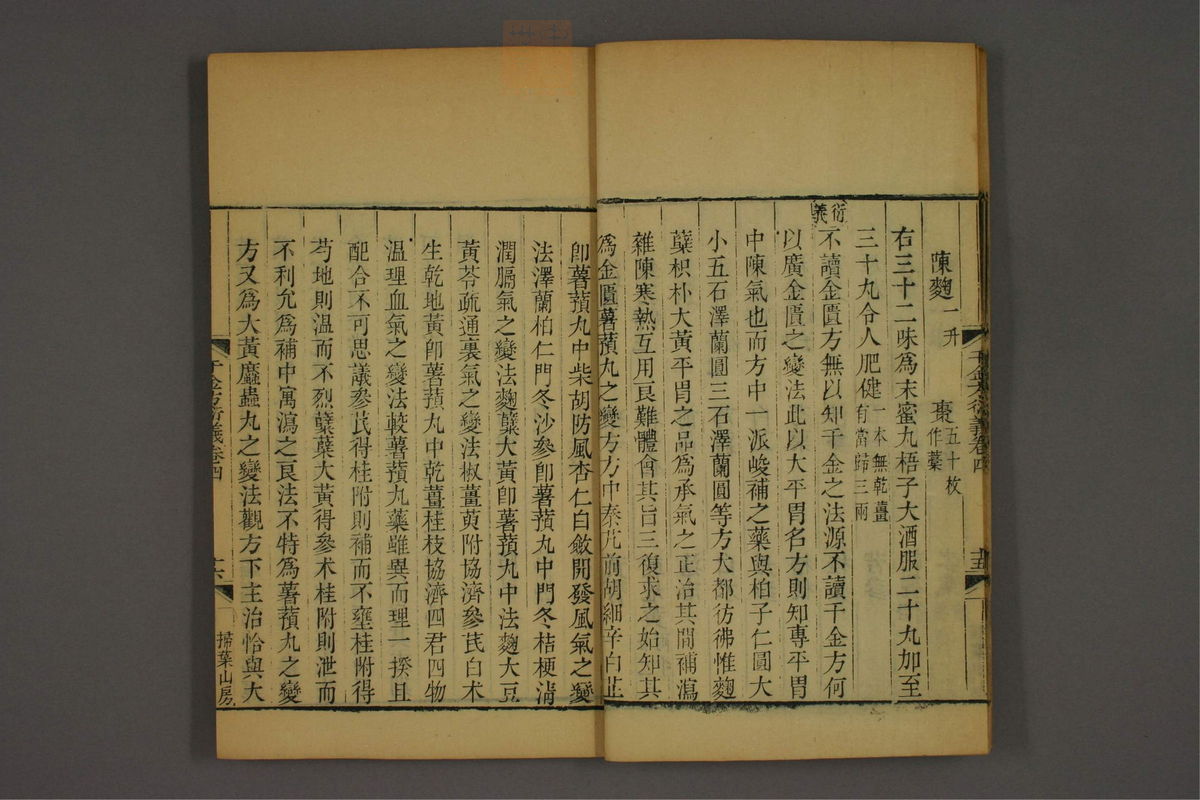 陳麴一升　棗五十枚作藳
右三十二味爲末蜜丸梧子大酒服二十九加至
三十九合人肥健一本無乾薑有當歸三兩
衍義
不讀金匱方無以知千金之法源不讀千金方何
以廣金匱之變法此以大平胃名方則知專平胃
中陳氣也而方中一派峻補之藥與柏子仁圓大
小五石澤蘭圓三石澤蘭圓等方大都彷彿惟麴
蘗枳朴大黃平胃之品爲承氣之正治其間補瀉
雜陳寒熱互用艮難體會其旨三復求之始知其
爲金匱薯蕷丸之變方方中秦艽前胡細辛白芷
千金方衍義卷四
十五
卽薯蕷丸中柴胡防風杏仁白斂開發風氣之變
法澤蘭柏仁門冬沙參卽薯蕷丸中門冬桔梗清
潤膈氣之變法麴蘗大黃卽薯蕷丸中法麴大豆
黃芩疏通裏氣之變法椒薑萸附協濟參芪白术
生乾地黃卽薯蕷丸中乾薑桂枝協濟四君四物
溫理血氣之變法較薯蕷丸藥雖異而理一揆且
配合不可思議參芪得桂附則補而不壅桂附得
芍地則溫而不烈蘗葉大黃得參术桂附則泄而
不利允爲補中寓瀉之艮法不特爲薯蕷丸之變
方又爲大黃䗪蟲丸之變法觀方下主治恰與大
千金方衍義卷四
十六
掃葉山房